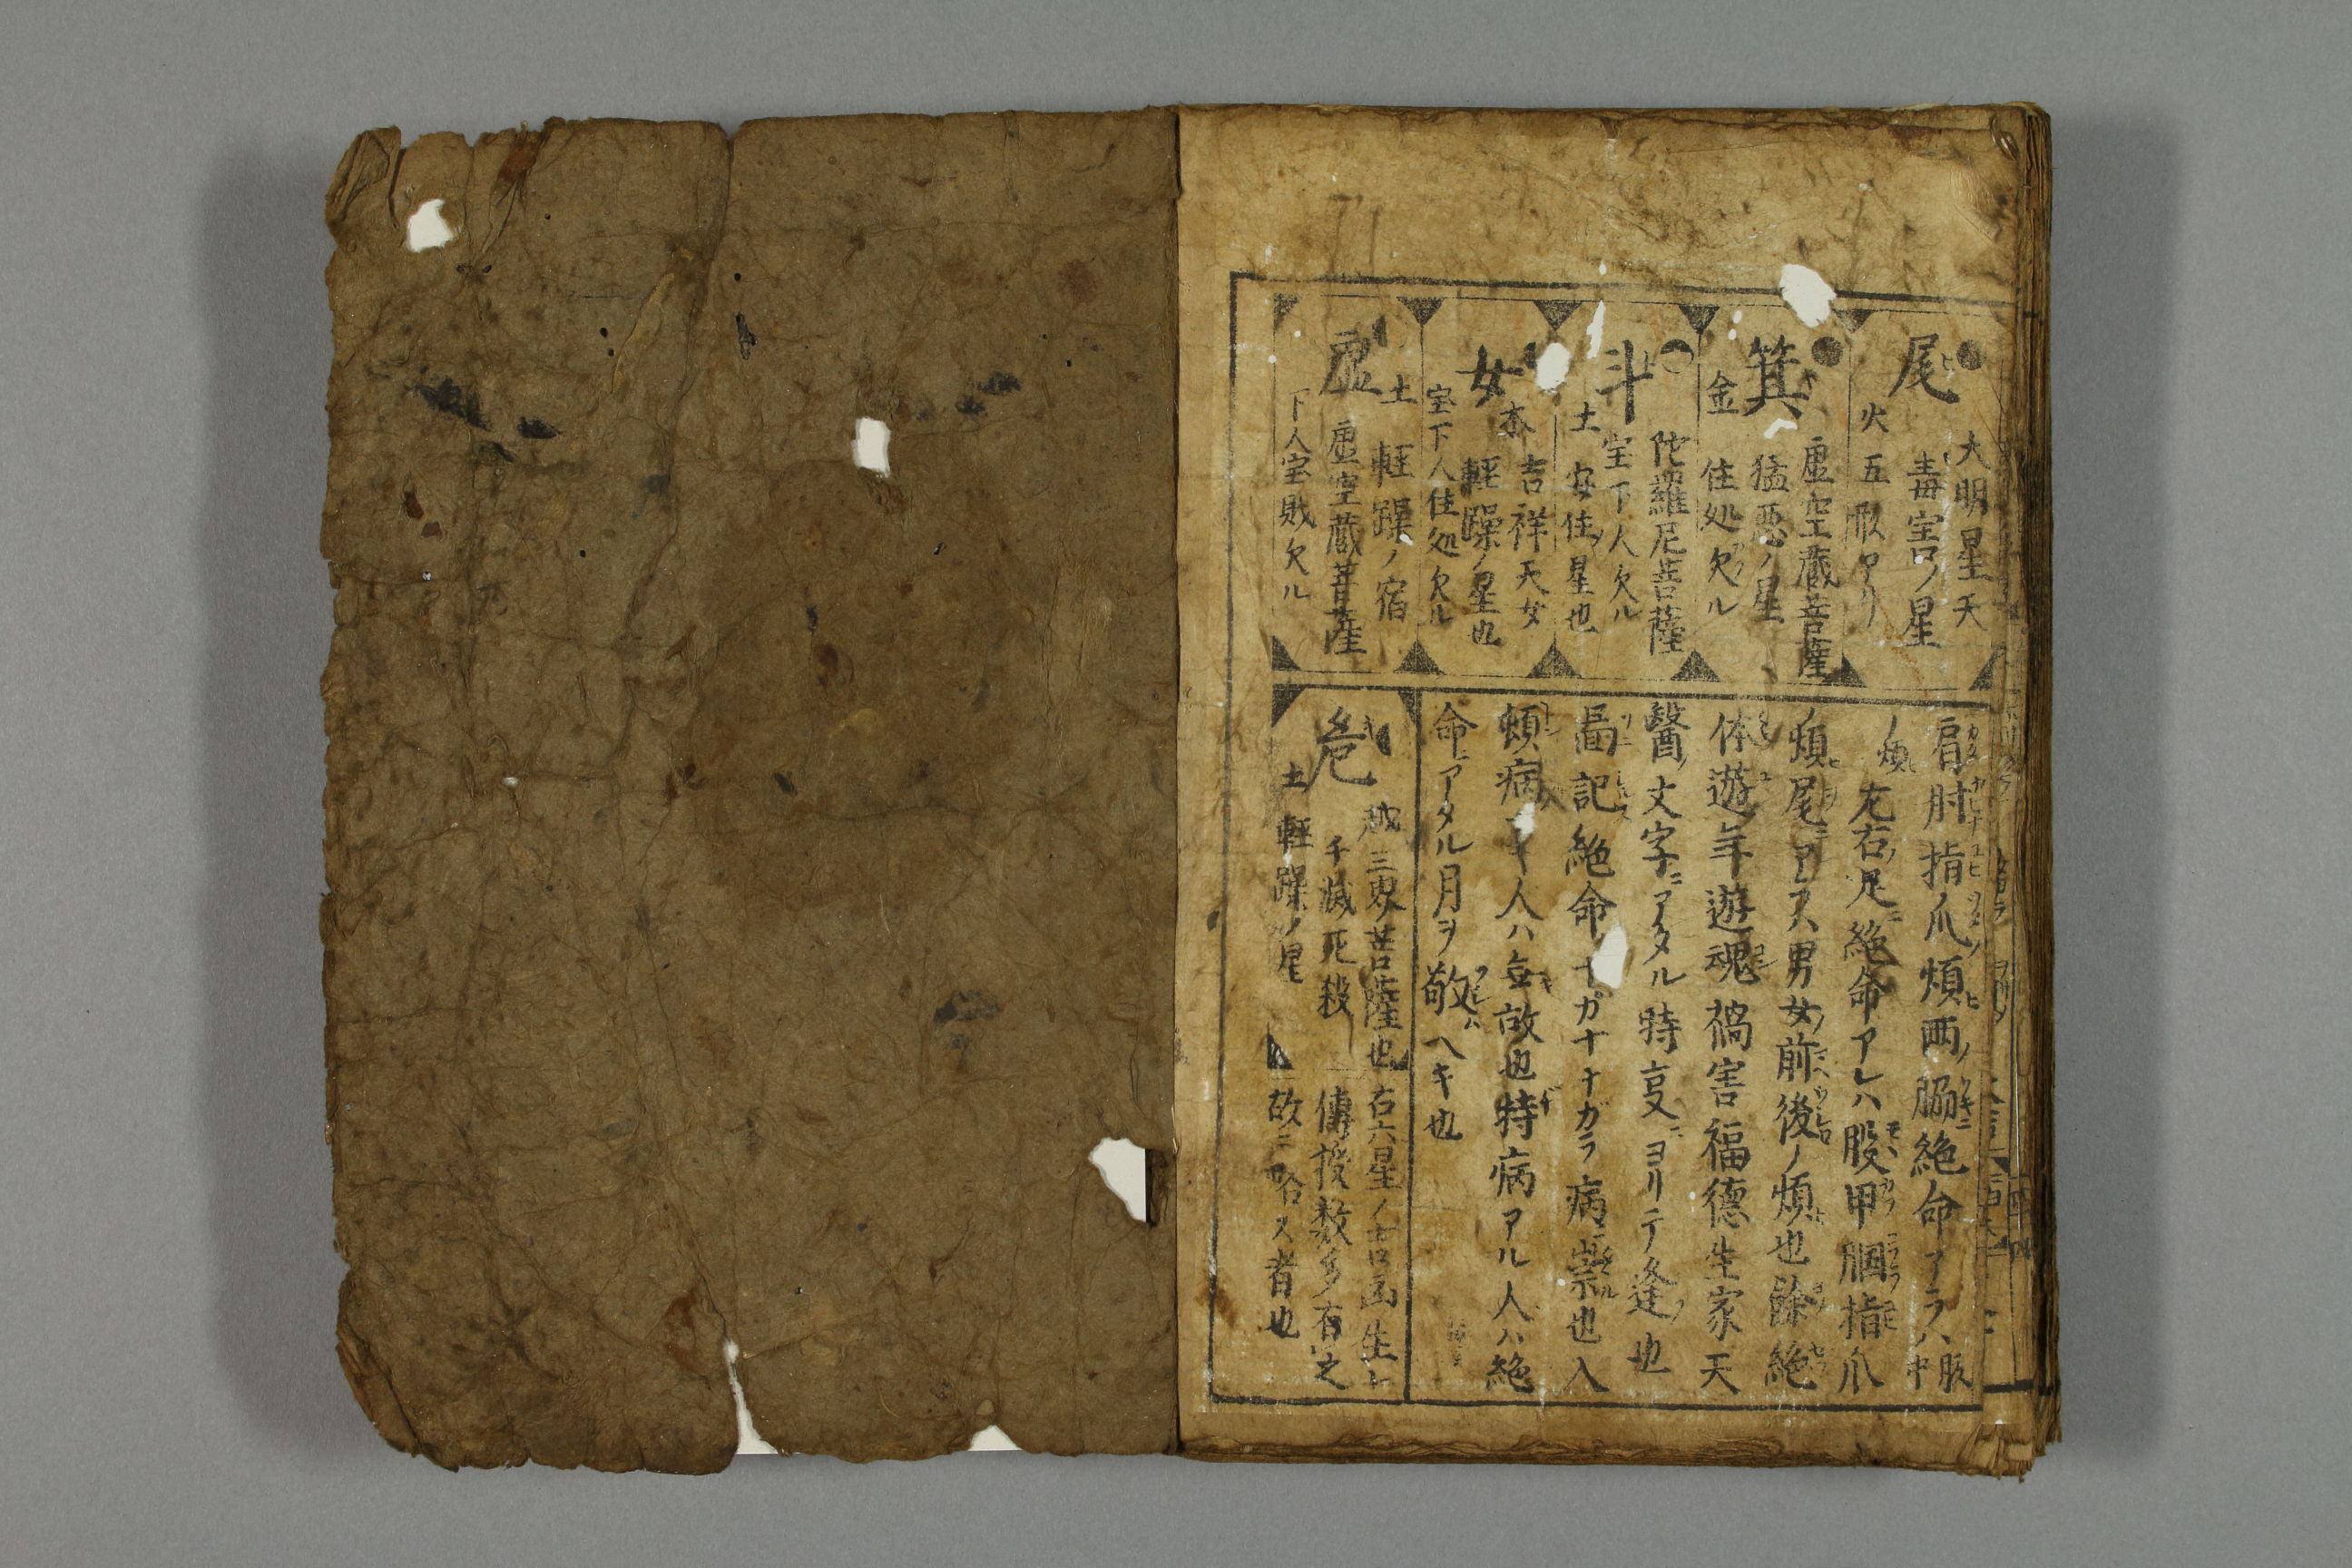 尾
大明星天
毒害ノ星
火
五
アリ
箕
虚空蔵菩薩
猛悪ノ星
金
住処欠ル
斗
陀羅尼菩薩
宝下人欠ル
土
安住星也
女
吉祥天女
軽躁ノ星也
宝下人住処欠ル
虚
土
軽躁ノ宿
虚空蔵菩薩
下人宝財欠ル
肩肘指爪ノ煩ヒ両ノ脇絶命アラハ
ノ煩左右ノ足ニ絶命アレハ股甲膕指爪
ノ煩尾ニアレハ男女前後ノ煩也除絶
体遊年遊魂禍害福德生家天
醫ノ文字ニアタル時ヨリテ逢也
記絶命ナガナナガラ病崇也入
煩病ナキ人ハ無故也特病アル人ハ絶
命ニアタル月ヲ敬ヘキ也
危
三界菩薩也
千滅死殺
土
軽躁ノ星
右六星ノ吉凶生
傳授数多有之
故ニ略ス者也